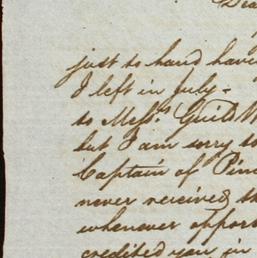 Dea
just to hand havi
I left in July.
to Messrs Guild W
but I am sorry to
Captain of Pin
never received th
whenever oppor
credited you in